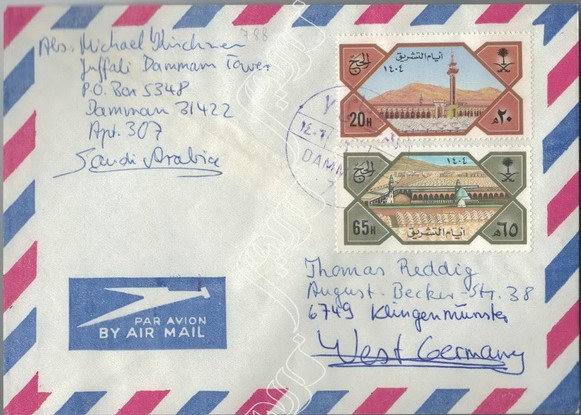 788
Abs. Michael
Juffali Dammam Tower
P.O. Box 5348
Dammam 31422
Apt. 307
Saudi Arabia
أيام التشريق
الحج
١٤٠٤
20H
٢٠ هـ
DAMM
١٤٠٤
الحج
65H
٦٥ هـ
أيام التشريق
PAR AVION
BY AIR MAIL
Thomas Reddig
August-Becker-Str. 38
6749 Klingenmünster
West Germany